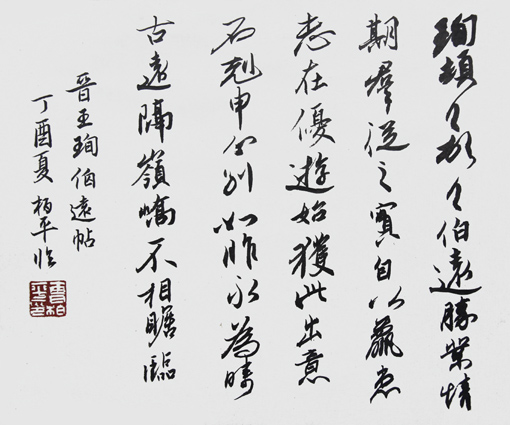 珣頓首頓首伯遠勝業情
期羣從之寶自以羸患
志在優遊始獲此出意
不剋申分別如昨永為疇
古遠隔嶺嶠不相瞻臨
晉王珣伯遠帖
丁酉夏柏平临